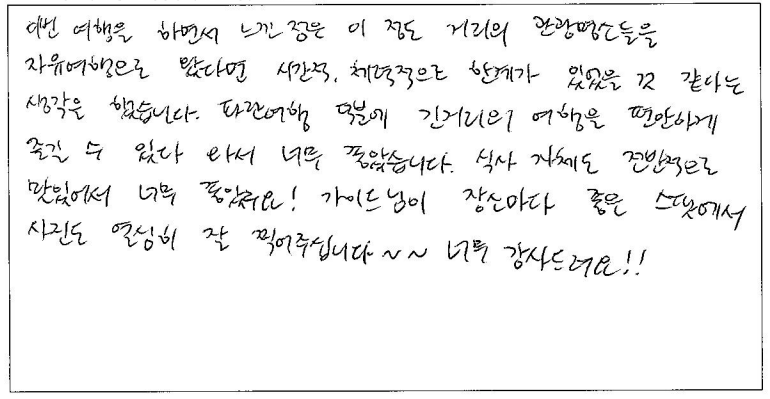 이번 여행을 하면서 느낀 점은 이 정도 거리의 관광명소들을
자유여행으로 왔다면 시간적, 체력적으로 한계가 있었을 것 같다는
생각을 했습니다. 패관여행 덕분에 긴거리의 여행을 편안하게
즐길 수 있다 와서 너무 좋았습니다. 식사 자체도 전반적으로
맛있어서 너무 좋았어요! 가이드님이 장소마다 좋은 스팟에서
사진도 열심히 잘 찍어주십니다~~ 너무 감사드려요!!